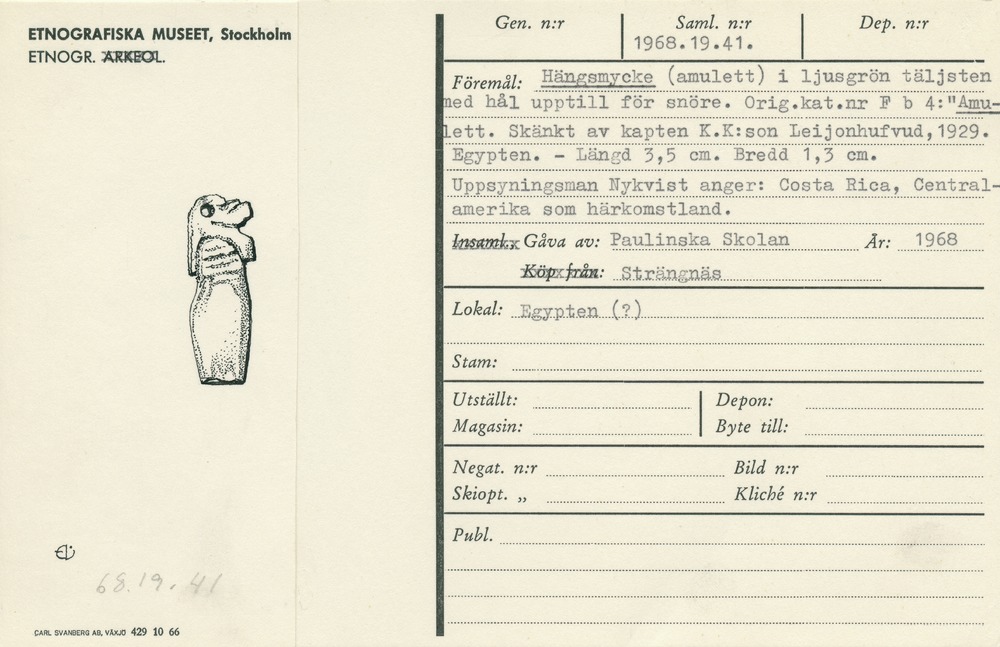 ETNOGRAFISKA MUSEET, Stockholm
ETNOGR. ARKEOL.
68.19.41
CARL SVANBERG AB, VÄXJÖ 429 10 66
Gen. n:r Saml. n:r Dep. n:r
1968.19.41.
Föremål: Hängsmycke (amulett) i ljusgrön täljsten
med hål upptill för snöre. Orig.kat.nr F b 4:"Amu-
lett. Skänkt av kapten K.K:son Leijonhufvud,1929.
Egypten. - Längd 3,5 cm. Bredd 1,3 cm.
Uppsyningsman Nykvist anger: Costa Rica, Central-
amerika som härkomstland.
Insaml. Gåva av: Paulinska Skolan År: 1968
Köp från: Strängnäs
Lokal: Egypten (?)
Stam:
Utställt: Depon:
Magasin: Byte till:
Negat. n:r Bild n:r
Skiopt. „ Kliché n:r
Publ.